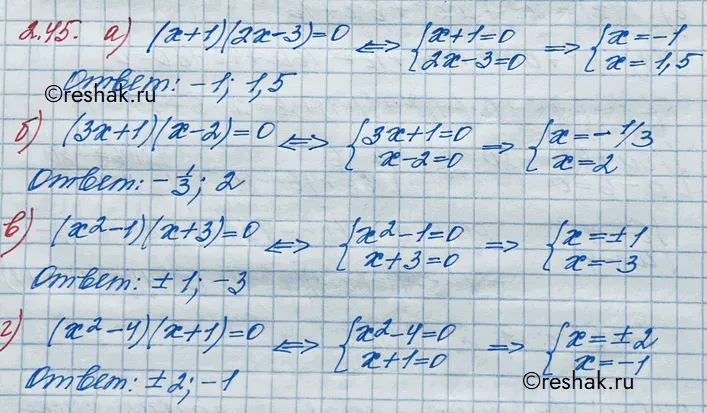 2.45. а) (x+1)(2x-3)=0 <=> { x+1=0 => { x=-1
2x-3=0 x=1,5
Ответ: -1; 1,5
©reshak.ru
б) (3x+1)(x-2)=0 <=> { 3x+1=0 => { x=-1/3
x-2=0 x=2
Ответ: -1/3; 2
в) (x²-1)(x+3)=0 <=> { x²-1=0 => { x=±1
x+3=0 x=-3
Ответ: ±1; -3
г) (x²-4)(x+1)=0 <=> { x²-4=0 => { x=±2
x+1=0 x=-1
Ответ: ±2; -1
©reshak.ru